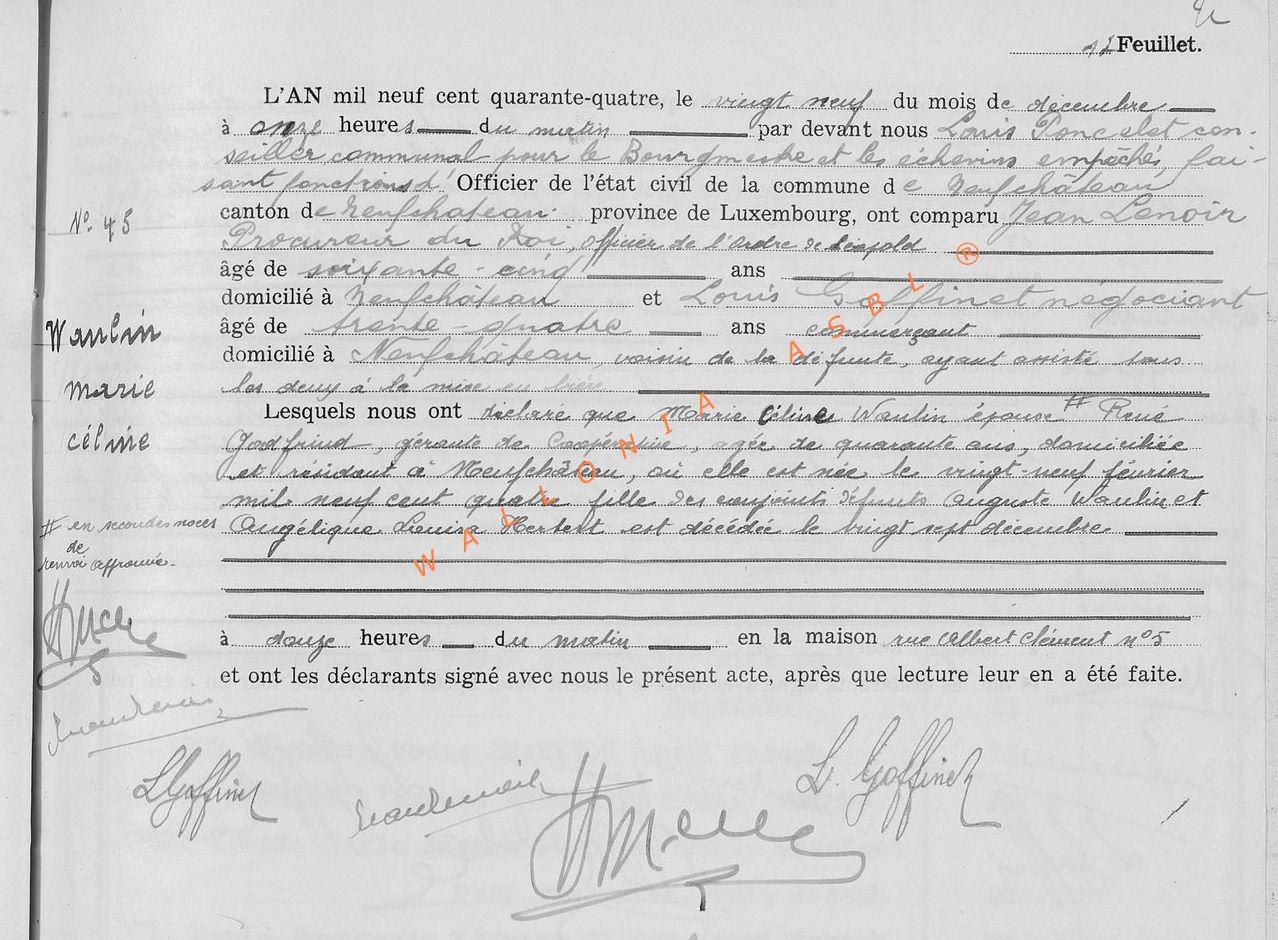 12 Feuillet.
L'AN mil neuf cent quarante-quatre, le vingt neuf du mois de décembre
à onze heures du matin par devant nous Louis Poncelet con-
seiller communal pour le Bourgmestre et les échevins empêchés, fai-
sant fonctions d' Officier de l'état civil de la commune de Neufchâteau
N° 45
canton de Neufchateau province de Luxembourg, ont comparu Jean Lenoir
Procureur du Roi, officier de l'ordre de Léopold
âgé de soixante-cinq ans
domicilié à Neufchâteau et Louis Goffinet négociant
Waulin
marie
céline
âgé de trente-quatre ans commerçant
domicilié à Neufchâteau, voisin de la défunte, ayant assisté tous
les deux à la mise en bière
Lesquels nous ont déclaré que Marie Céline Waulin épouse # René
Godfrind, gérante de Coopérative, agée de quarante ans, domiciliée
et résidant à Neufchâteau, où elle est née le vingt-neuf février
mil neuf cent quatre fille des conjoints défunts Auguste Waulin et
Angélique Louisa Herbert est décédée le vingt sept décembre
# en secondes noces
de
renvoi approuvé
à douze heures du matin en la maison rue Albert Clément n° 5
et ont les déclarants signé avec nous le présent acte, après que lecture leur en a été faite.
LGoffinet
L. Goffinet
WALLONIA ASBL ®